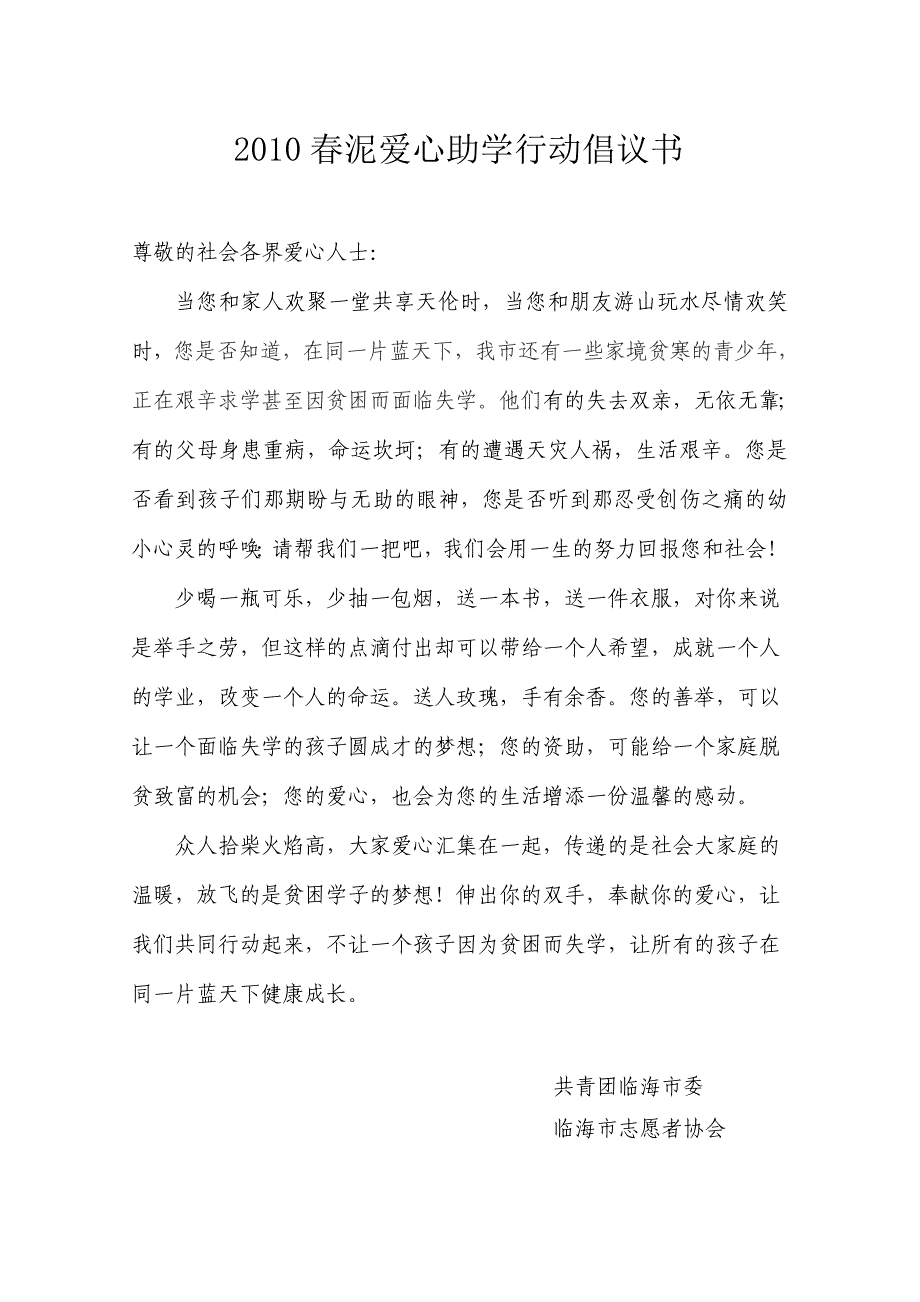 2010春泥爱心助学行动倡议书
尊敬的社会各界爱心人士：
当您和家人欢聚一堂共享天伦时，当您和朋友游山玩水尽情欢笑
时，您是否知道，在同一片蓝天下，我市还有一些家境贫寒的青少年，
正在艰辛求学甚至因贫困而面临失学。他们有的失去双亲，无依无靠；
有的父母身患重病，命运坎坷；有的遭遇天灾人祸，生活艰辛。您是
否看到孩子们那期盼与无助的眼神，您是否听到那忍受创伤之痛的幼
小心灵的呼唤：请帮我们一把吧，我们会用一生的努力回报您和社会！
少喝一瓶可乐，少抽一包烟，送一本书，送一件衣服，对你来说
是举手之劳，但这样的点滴付出却可以带给一个人希望，成就一个人
的学业，改变一个人的命运。送人玫瑰，手有余香。您的善举，可以
让一个面临失学的孩子圆成才的梦想；您的资助，可能给一个家庭脱
贫致富的机会；您的爱心，也会为您的生活增添一份温馨的感动。
众人拾柴火焰高，大家爱心汇集在一起，传递的是社会大家庭的
温暖，放飞的是贫困学子的梦想！伸出你的双手，奉献你的爱心，让
我们共同行动起来，不让一个孩子因为贫困而失学，让所有的孩子在
同一片蓝天下健康成长。
共青团临海市委
临海市志愿者协会